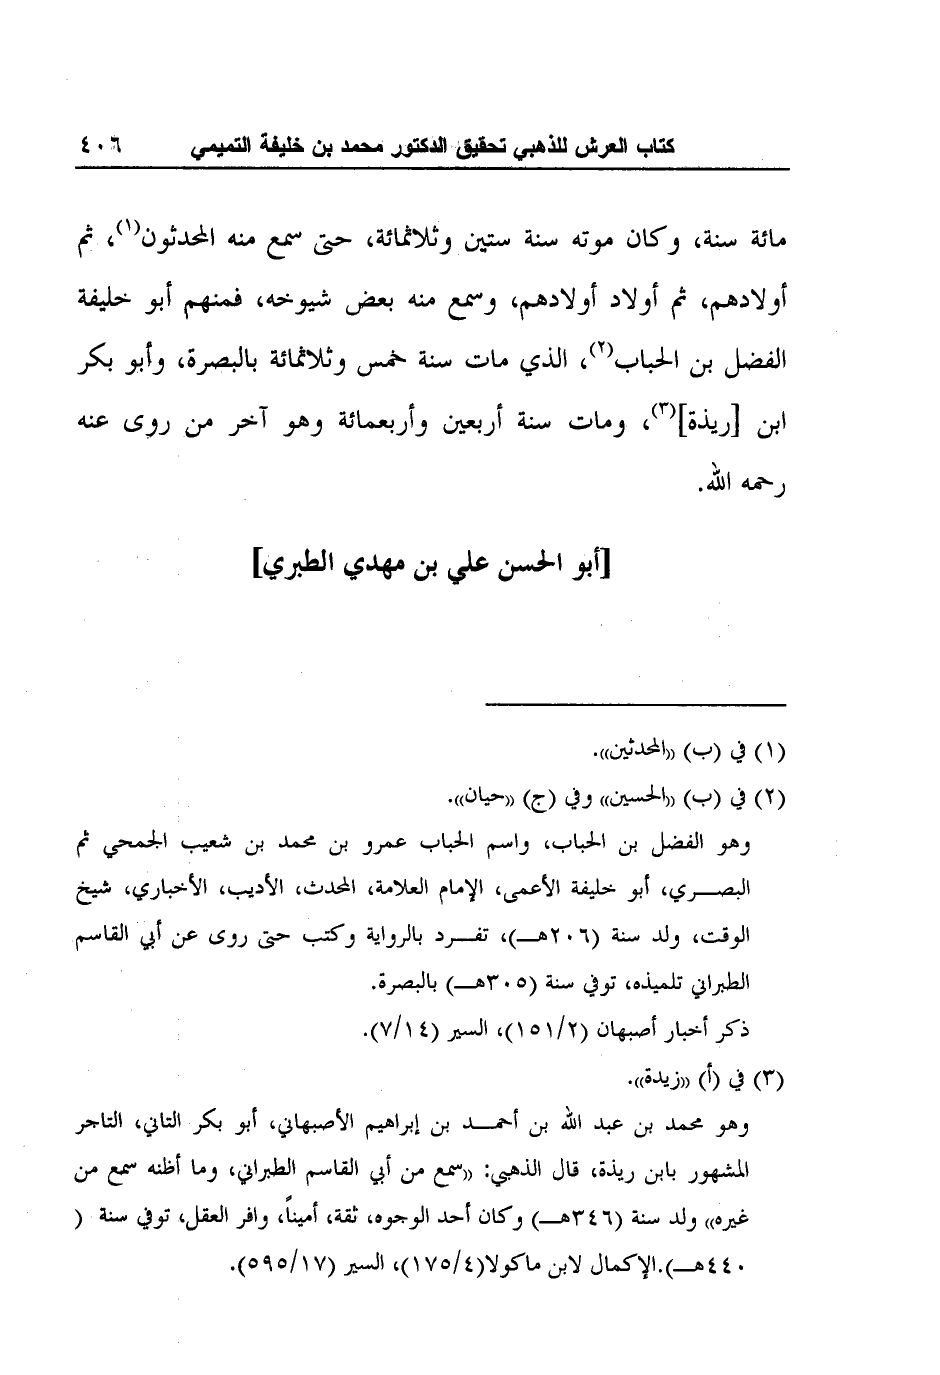 كتاب العرش للذهبي تحقيق الدكتور محمد بن خليفة التميمي ٤٠٦
مائة سنة، وكان موته سنة ستين وثلاثمائة، حتى سمع منه المحدثون(١)، ثم
أولادهم، ثم أولاد أولادهم، وسمع منه بعض شيوخه، فمنهم أبو خليفة
الفضل بن الحباب(٢)، الذي مات سنة خمس وثلاثمائة بالبصرة، وأبو بكر
ابن [ريذة](٣)، ومات سنة أربعين وأربعمائة وهو آخر من روى عنه
رحمه الله.
[أبو الحسن علي بن مهدي الطبري]
(١) في (ب) «المحدثين».
(٢) في (ب) «الحسين» وفي (ج) «حيان».
وهو الفضل بن الحباب، واسم الحباب عمرو بن محمد بن شعيب الجمحي ثم
البصري، أبو خليفة الأعمى، الإمام العلامة، المحدث، الأديب، الأخباري، شيخ
الوقت، ولد سنة (٢٠٦هـ)، تفرد بالرواية وكتب حتى روى عن أبي القاسم
الطبراني تلميذه، توفي سنة (٣٠٥هـ) بالبصرة.
ذكر أخبار أصبهان (١٥١/٢)، السير (٧/١٤).
(٣) في (أ) «زيدة».
وهو محمد بن عبد الله بن أحمد بن إبراهيم الأصبهاني، أبو بكر التاني، التاجر
المشهور بابن ريذة، قال الذهبي: «سمع من أبي القاسم الطبراني، وما أظنه سمع من
غيره» ولد سنة (٣٤٦هـ) وكان أحد الوجوه، ثقة، أميناً، وافر العقل، توفي سنة (
٤٤٠هـ).الإكمال لابن ماكولا(١٧٥/٤)، السير (٥٩٥/١٧).